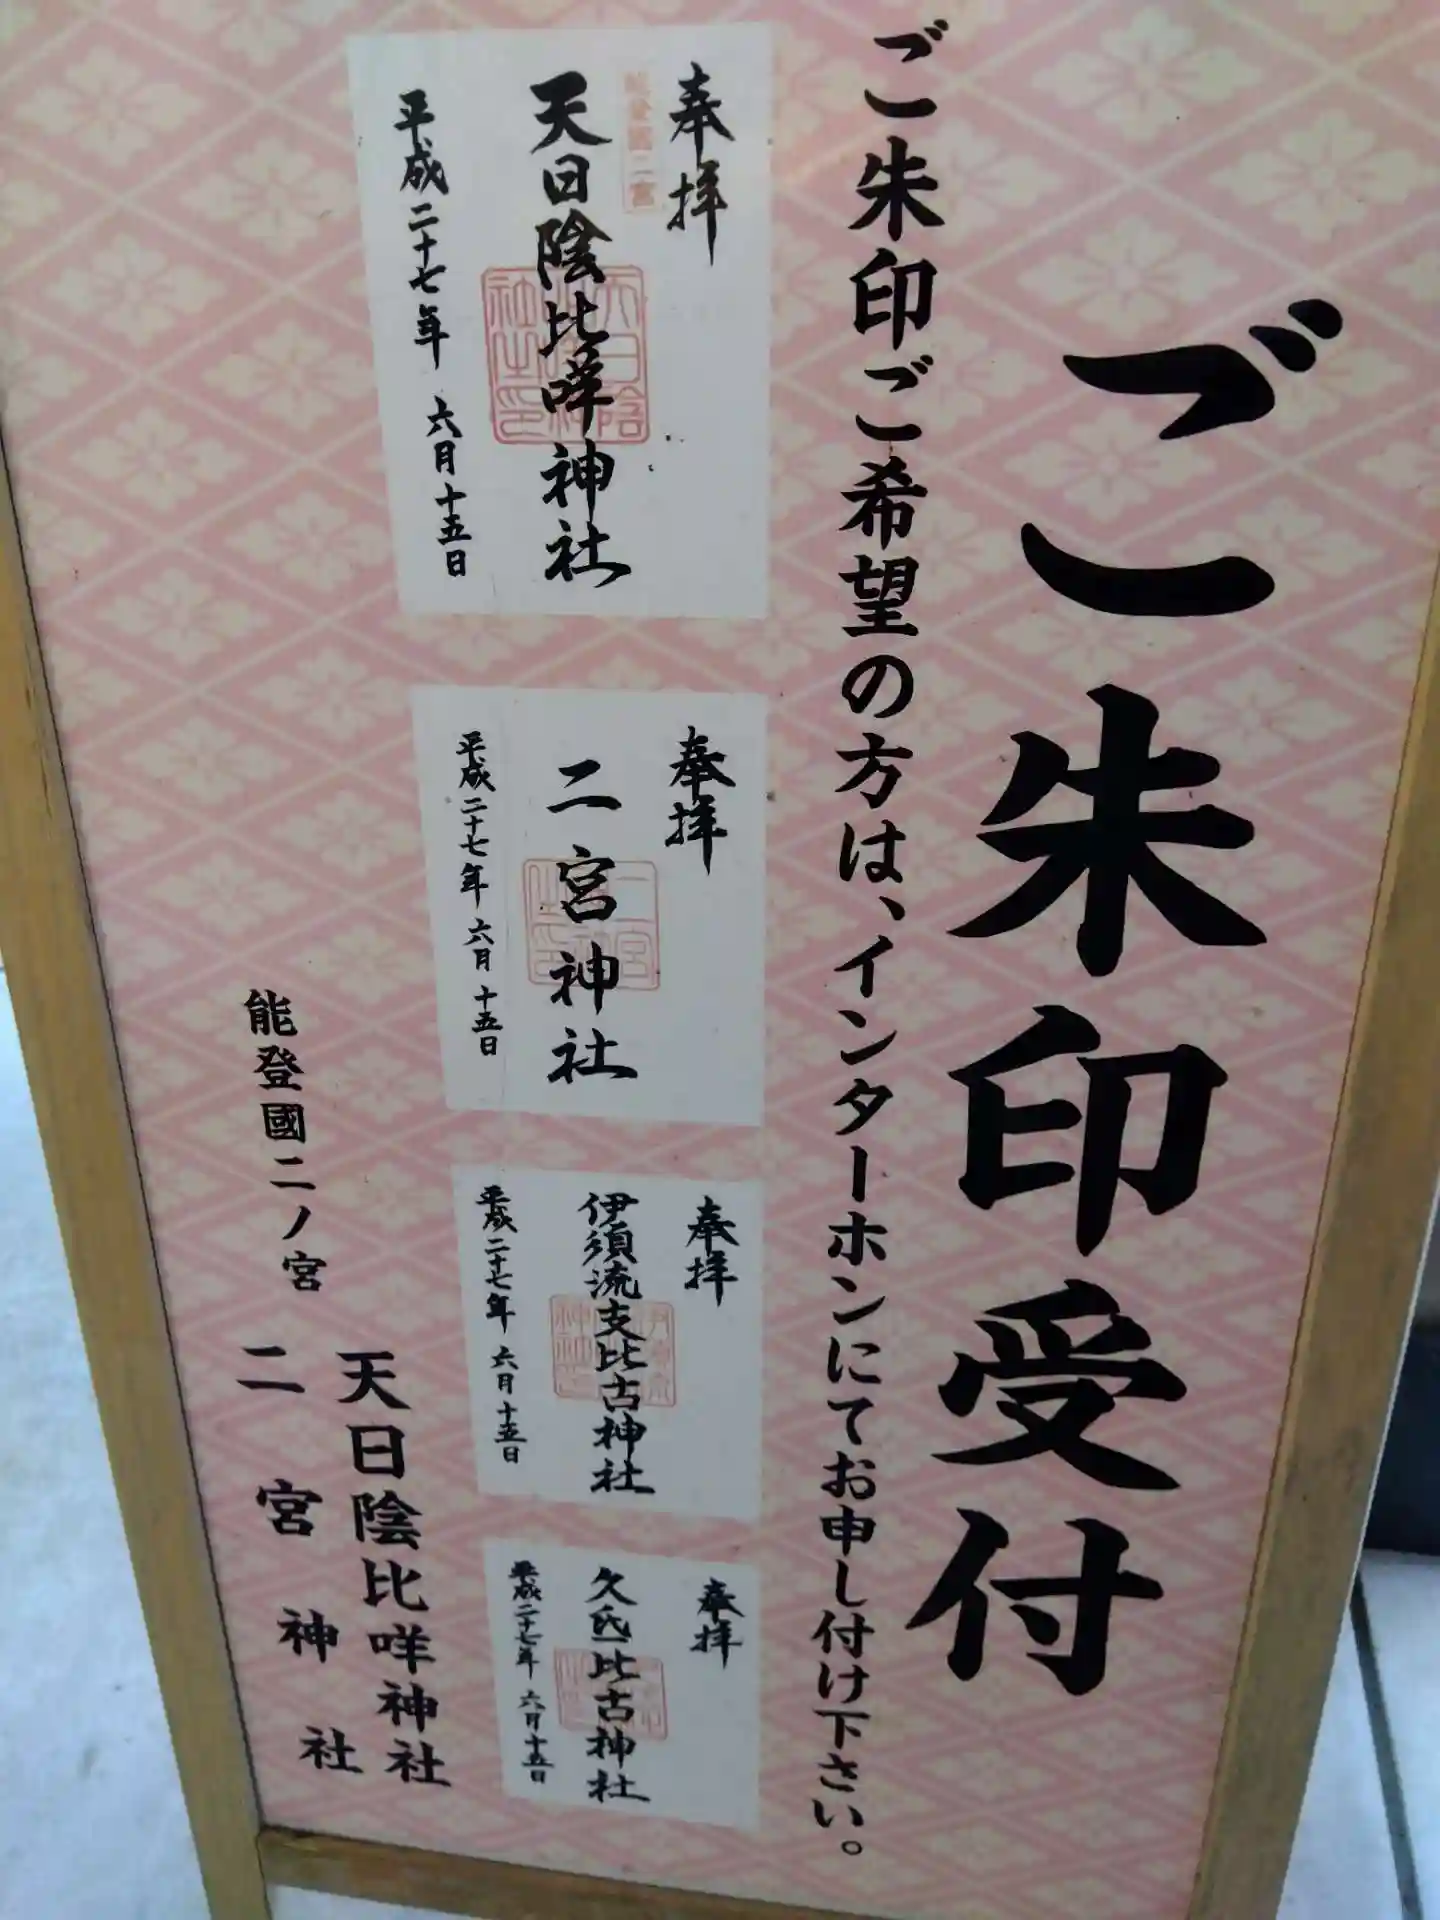 ご朱印受付
ご朱印ご希望の方は、インターホンにてお申し付け下さい。
奉拝
能登國二宮
天日陰比咩神社
平成二十七年 六月十五日
奉拝
二宮神社
平成二十七年 六月十五日
奉拝
伊須流支比古神社
平成二十七年 六月十五日
奉拝
久氐比古神社
平成二十七年 六月十五日
能登國二ノ宮
天日陰比咩神社
二宮神社